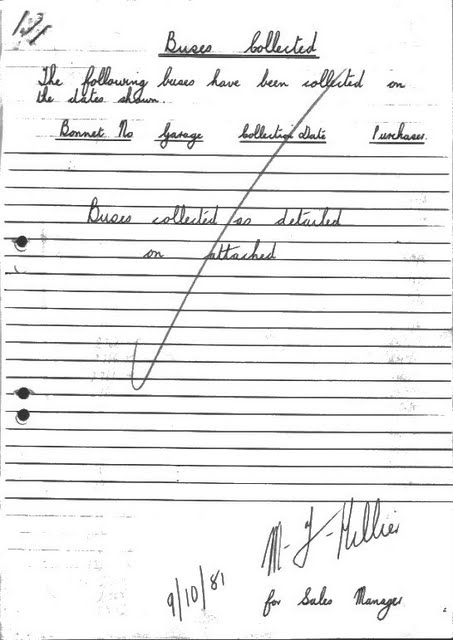 Buses Collected
The following buses have been collected on
the dates shown.
Bonnet No Garage Collection Date Purchaser.
Buses collected as detailed
on attached
M-J-Hillier
9/10/81
for Sales Manager